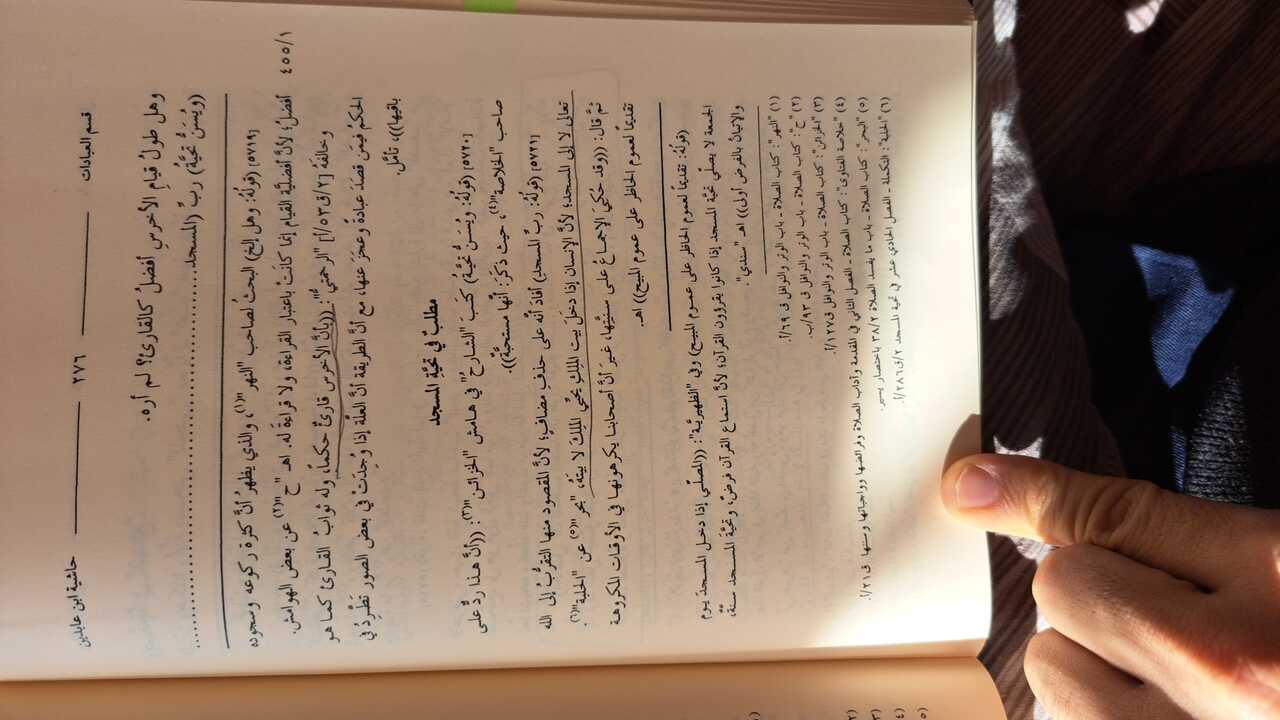 قسم العبادات ـــــــــ ٢٧٦ ـــــــــ حاشية ابن عابدين
وهل طولُ قيامِ الأخرسِ أفضلُ كالقارئ؟ لم أره.
(ويُسَنُّ تحيَّةُ) ربِّ (المسجد................................
٤٥٥/١
[٥٧١٩] (قولُهُ: وهل إلخ) البحثُ لصاحب "النهر"(١)، والذي يظهرُ أنَّ كثرةَ ركوعِه وسجودِه
أفضلُ؛ لأنَّ أفضليَّةَ القيامِ إنما كانَتْ باعتبار القراءة، ولا قراءةَ له. اهـ "ح"(٢) عن بعض الهوامش.
وخالفَهُ [٢/ق٥٣/أ] "الرحمتيُّ": ((بأنَّ الأخرس قارئٌ حكماً، وله ثوابُ القارئ كما هو
الحكمُ فيمَن قصَدَ عبادةً وعجَزَ عنها، مع أنَّ الطريقةَ أنَّ العلَّة إذا وُجِدَتْ في بعض الصور تَطَّرِدُ في
باقيها))، تأمَّل.
مطلبٌ في تحيَّة المسجد
[٥٧٢٠] (قولُهُ: ويُسَنُّ تحيَّةُ) كتَبَ "الشارحُ" في هامش "الخزائن"(٣): ((أنَّ هذا ردٌّ على
صاحب "الخلاصة"(٤)، حيث ذكَرَ: أنَّها مستحبَّةٌ)).
[٥٧٢١] (قولُهُ: ربِّ المسجد) أفادَ أنَّه على حذفِ مضافٍ؛ لأنَّ المقصود منها التقرُّبُ إلى الله
تعالى لا إلى المسجد؛ لأنَّ الإنسان إذا دخَلَ بيت الملِكِ يُحيِّي الملِكَ لا بيتَهُ، "بحر"(٥) عن "الحلبة"(٦).
ثمَّ قال: ((وقد حُكِيَ الإجماعُ على سنيَّتِها، غيرَ أنَّ أصحابنا يكرهونها في الأوقات المكروهة
تقديماً لعموم الحاظر على عموم المبيح)) اهـ.
(قولُهُ: تقديماً لعموم الحاظر على عموم المبيح) وفي "الظهيريَّة": ((المصلّي إذا دخل المسجدَ يوم
الجمعة لا يصلّي تحيَّة المسجد إذا كانوا يقرؤون القرآن؛ لأنَّ استماع القرآن فرضٌ، وتحيَّةَ المسجد سنَّةٌ،
والإتيانُ بالفرض أولى)) اهـ "سندي".
(١) "النهر": كتاب الصلاة ـ باب الوتر والنوافل ق٦٩/أ.
(٢) "ح": كتاب الصلاة ـ باب الوتر والنوافل ق٩٣/ب.
(٣) "الخزائن": كتاب الصلاة ـ باب الوتر والنوافل ق١٢٧/أ.
(٤) "خلاصة الفتاوى": كتاب الصلاة ـ الفصل الثاني في المقدمة وآداب الصلاة وفرائضها وواجباتها وسننها ق٢١/أ.
(٥) "البحر": كتاب الصلاة ـ باب ما يفسد الصلاة ٣٨/٢ باختصار يسير.
(٦) "الحلبة": التكملة ـ الفصل الحادي عشر في تحية المسجد ٢/ق٢٨٦/أ.